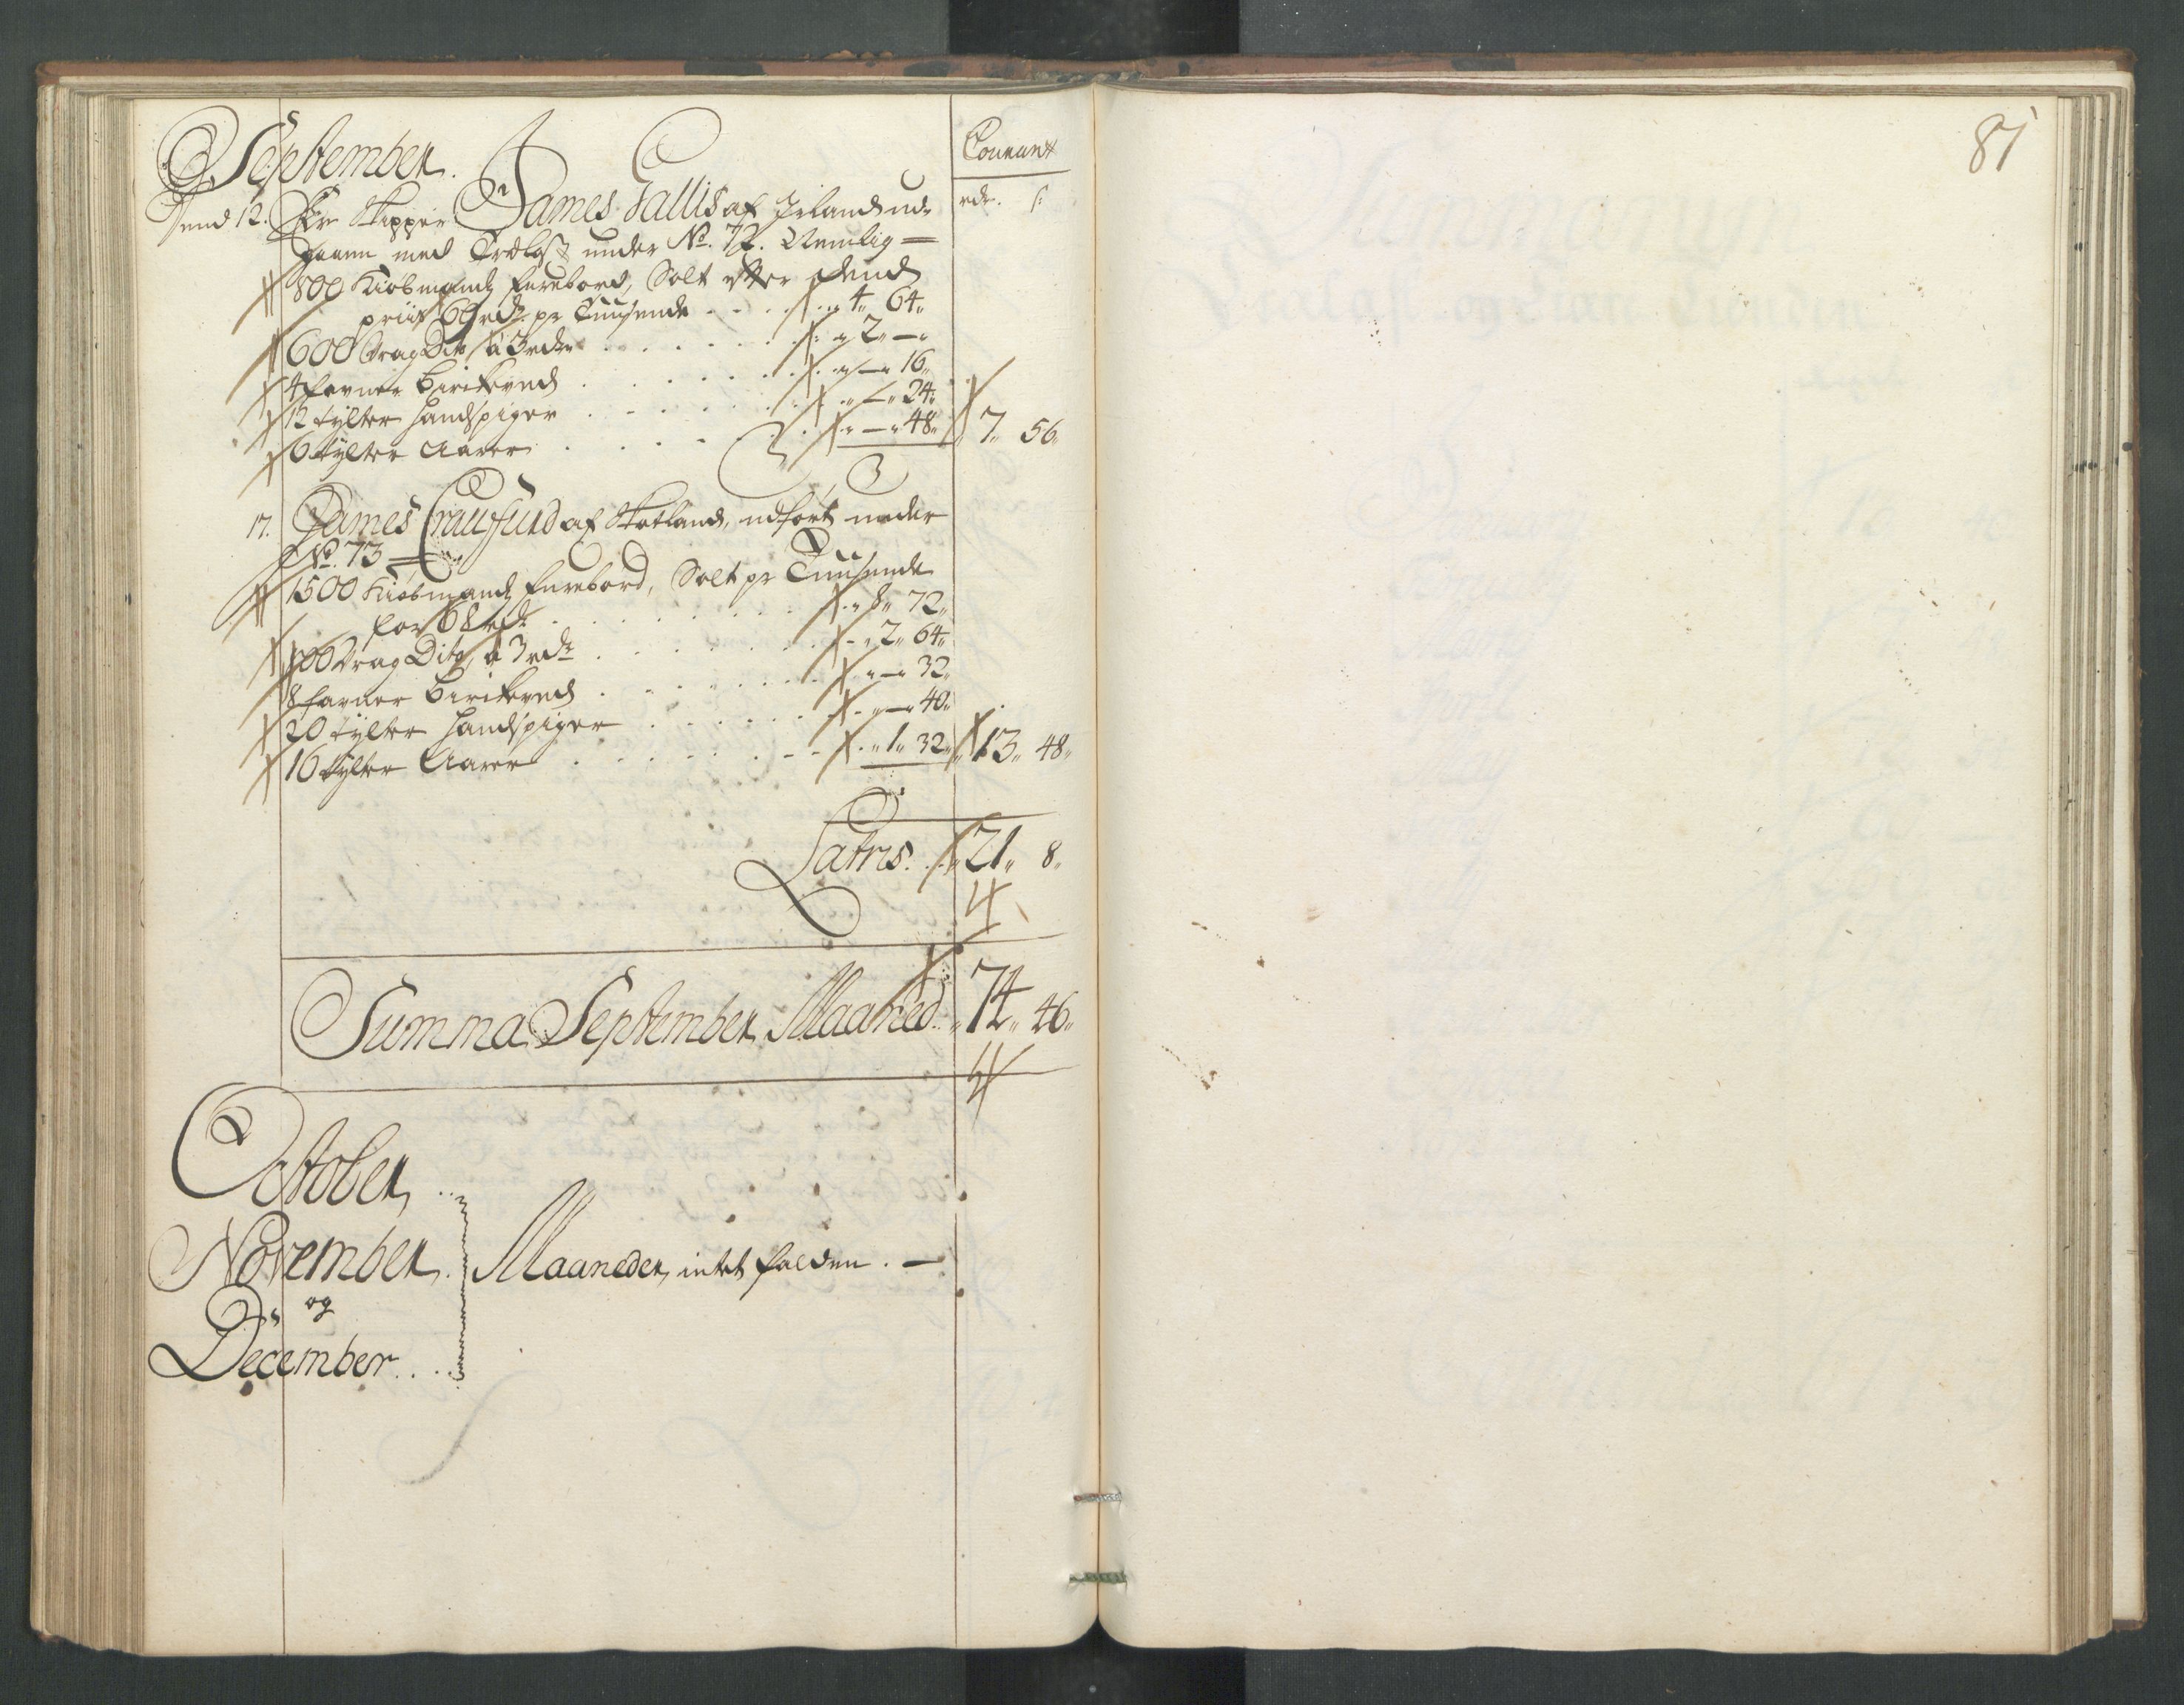 September.
Courant
rdr. s:
Dend 12. Er Skipper James Fallis af Irland ud
gaaen med Trælast under No. 72. Nemlig —
800 Kiøbmands furebord, Solt efter Dend
priis 69 rdr. pr Tuusende . . . „ 4„ 64„
600 Vrag Dito á 3 rdr . . . . „ 2„ —„
4 favner Birkeved . . . . . „ —„ 16„
12 tylter Handspiger . . . . „ —„ 24„
6 tylter Aarer . . . . „ —„ 48„ „ 7„ 56„
17. James Craufurd af Skotland, udført under
No. 73 —
1500 Kiøbmands furebord, Solt pr Tuusende
for 68 rdr . . . . . „ 8„ 72„
800 Vrag Dito, á 3 rdr . . . . „ 2„ 64„
8 favner Birkeved . . . . . „ —„ 32„
20 tylter Handspiger . . . . „ —„ 40„
16 tylter Aarer . . . . . „ 1„ 32„ „ 13„ 48„
Latris . . „ 21„ 8„
Summa September Maaned . „ 74„ 46„
October . .
November . Maaneder, intet falden . —
og
December . . .
81